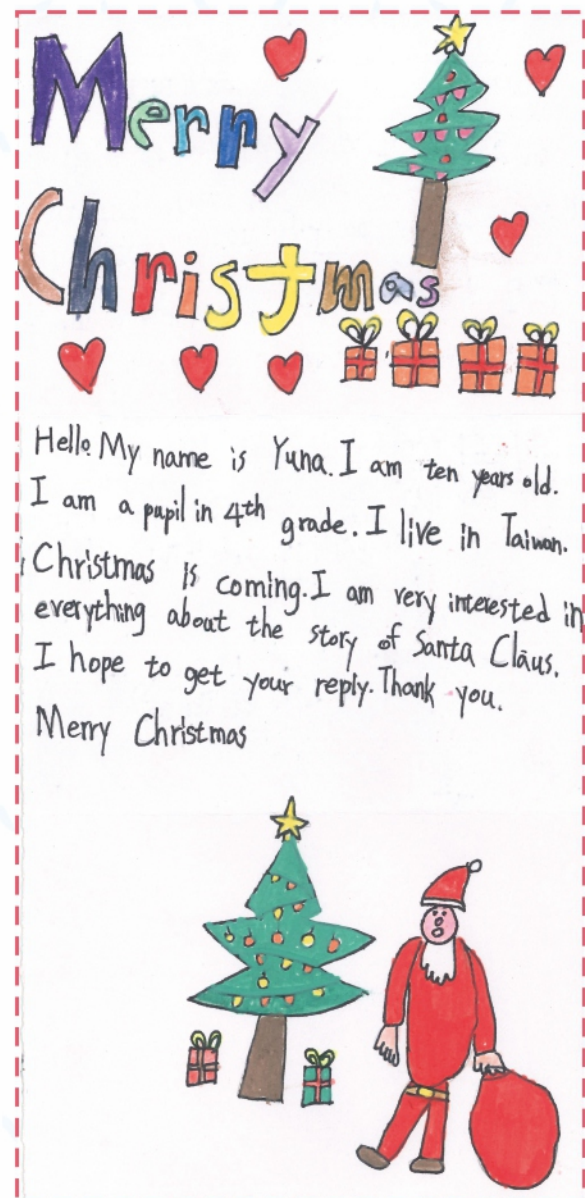 Merry
Christmas
Hello. My name is Yuna. I am ten years old.
I am a pupil in 4th grade. I live in Taiwan.
Christmas is coming. I am very interested in
everything about the story of Santa Claus.
I hope to get your reply. Thank you.
Merry Christmas